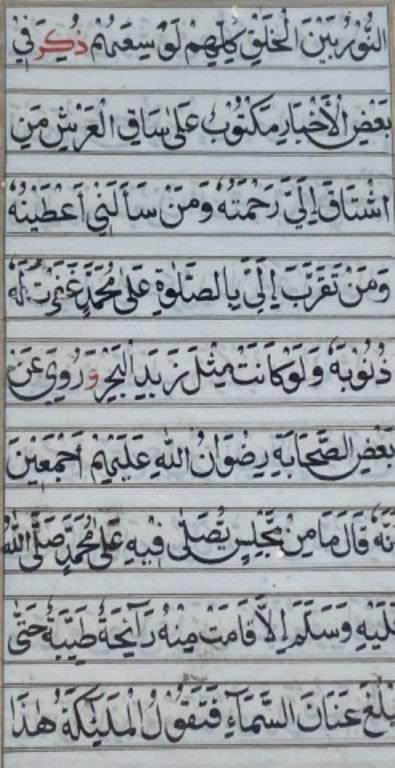 النُّوْرُ بَيْنَ الْخَلْقِ كُلِّهِمْ لَوْ سِعَهُمْ ذُكِرَ فِيْ
بَعْضِ الْأَخْبَارِ مَكْتُوْبٌ عَلٰى سَاقِ الْعَرْشِ مَنِ
اشْتَاقَ اِلَيَّ رَحْمَتُهٗ وَمَنْ سَأَلَنِيْ اَعْطَيْتُهٗ
وَمَنْ تَقَرَّبَ اِلَيَّ بِالصَّلٰوةِ عَلٰى مُحَمَّدٍ غَفَرْتُ لَهٗ
ذُنُوْبَهٗ وَلَوْ كَانَتْ مِثْلَ زَبَدِ الْبَحْرِ وَرُوِيَ عَنْ
بَعْضِ الصَّحَابَةِ رِضْوَانُ اللّٰهِ عَلَيْهِمْ اَجْمَعِيْنَ
نَّهٗ قَالَ مَا مِنْ مَجْلِسٍ يُصَلّٰى فِيْهِ عَلٰى مُحَمَّدٍ صَلَّى اللّٰهُ
عَلَيْهِ وَسَلَّمَ اِلَّا قَامَتْ مِنْهُ رَآئِحَةٌ طَيِّبَةٌ حَتّٰى
يَبْلُغَ عَنَانَ السَّمَآءِ فَتَقُوْلُ الْمَلٰٓئِكَةُ هٰذَا